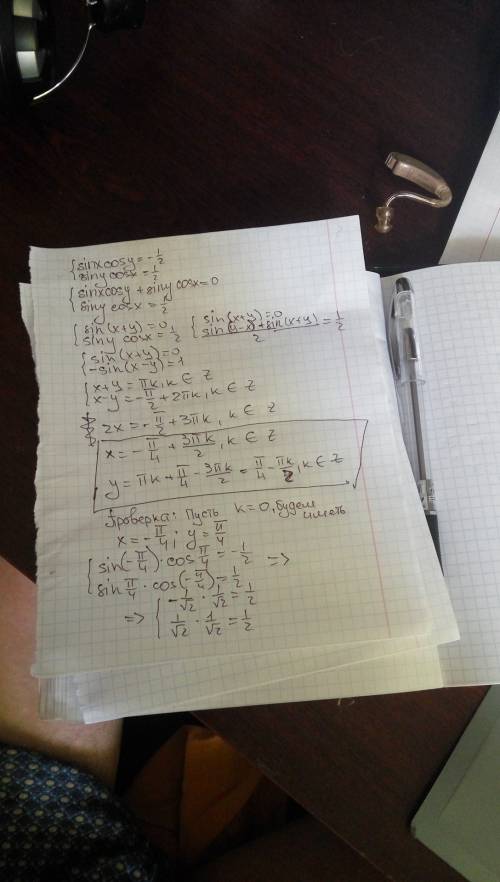 { sinxcosy = -1/2
{ siny cosx = 1/2
{ sinxcosy + siny cosx = 0
{ siny cosx = 1/2
{ sin(x+y) = 0 { sin(x+y) = 0
{ siny cosx = 1/2 { (sin(y-x) + sin(x+y))/2 = 1/2
{ sin(x+y) = 0
{ -sin(x-y) = 1
{ x+y = πk, k ∈ Z
{ x-y = -π/2 + 2πk, k ∈ Z
2x = -π/2 + 3πk, k ∈ Z
x = -π/4 + 3πk/2, k ∈ Z
y = πk + π/4 - 3πk/2 = π/4 - πk/2, k ∈ Z
Проверка: Пусть k=0, будем иметь
x = -π/4; y = π/4
{ sin(-π/4) · cos π/4 = -1/2 =>
{ sin π/4 · cos(-π/4) = 1/2
=> { -1/√2 · 1/√2 = 1/2
{ 1/√2 · 1/√2 = 1/2